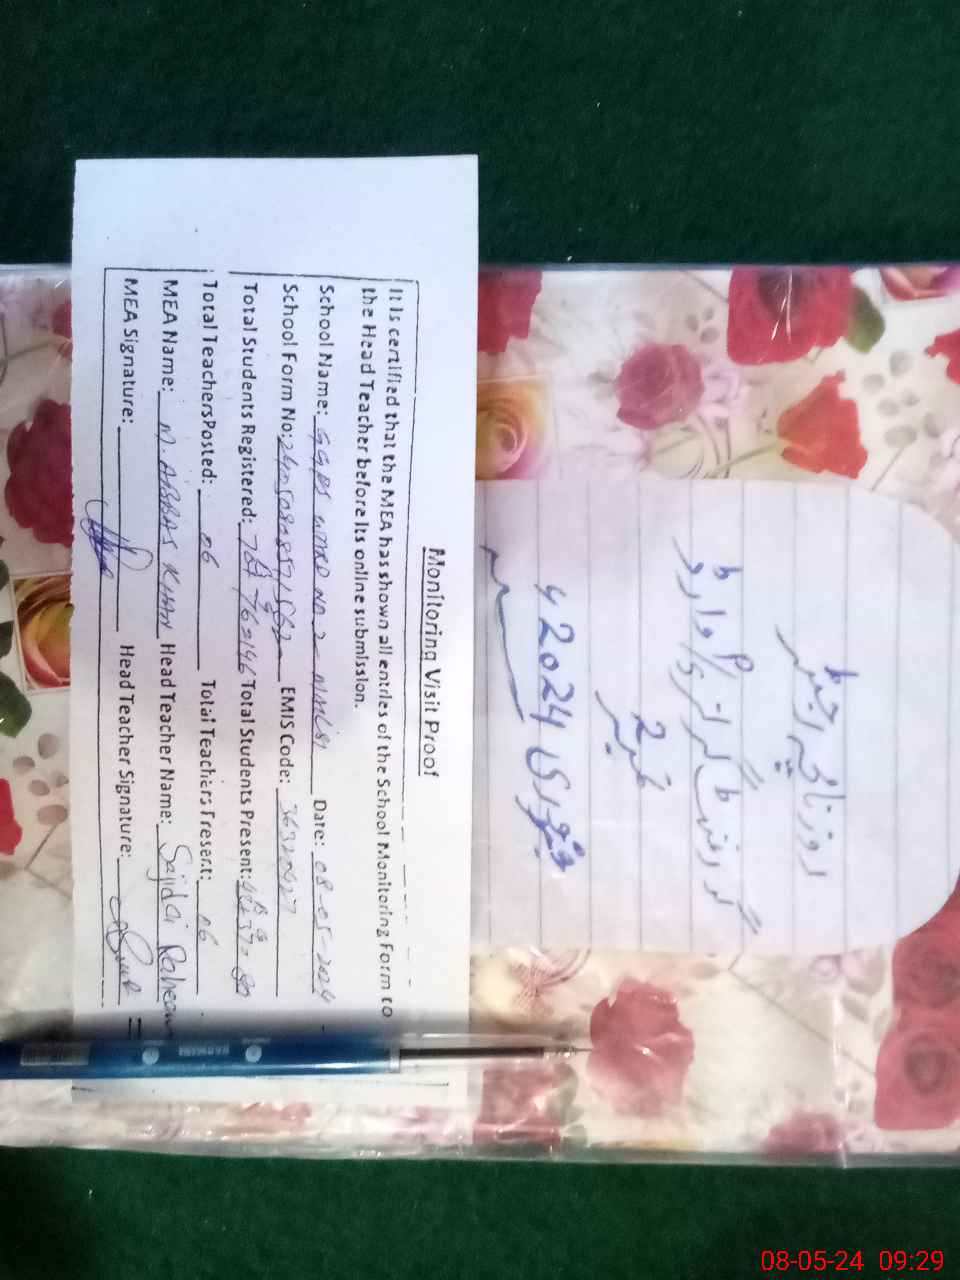 Monitoring Visit Proof
It is certified that the MEA has shown all entries of the School Monitoring Form to
the Head Teacher before its online submission.
School Name: GGPS WARD NO. 2 Date: 08-05-2024
School Form No: EMIS Code: 36320427
Total Students Registered: Total Students Present:
Total Teachers Posted: 06 Total Teachers Present: 06
MEA Name: M. ABBAS KHAN Head Teacher Name: Sajida
MEA Signature: Head Teacher Signature:
رجسٹر
گورنمنٹ گرلز وارڈ
نمبر 2
جنوری 2024ء
08-05-24 09:29